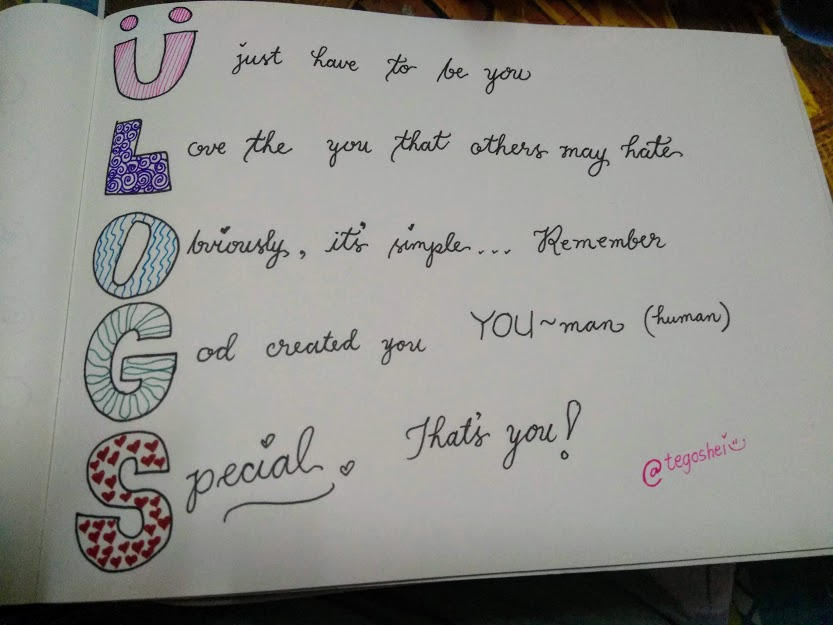 Ü just have to be you
Love the you that others may hate
Obviously, it's simple... Remember
God created you YOU~man (human)
Special. That's you!
@tegoshei